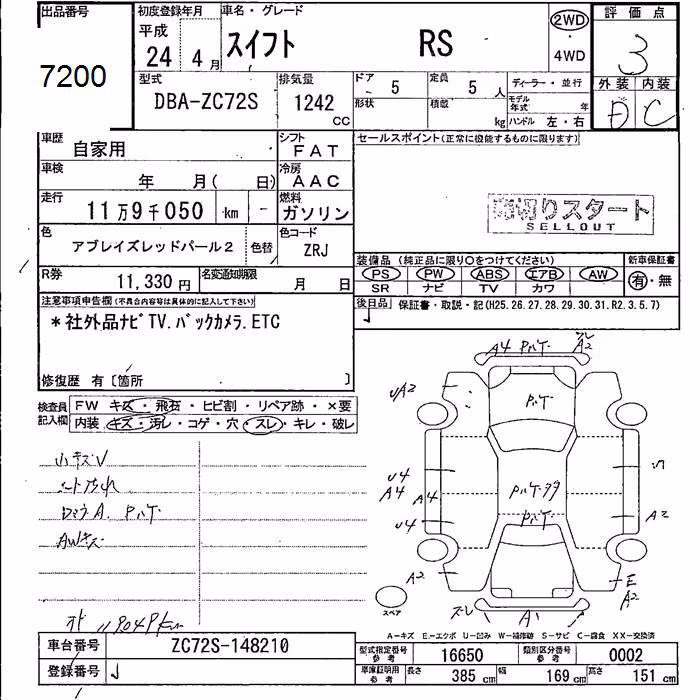 出品番号
7200
初度登録年月
平成
24 4 月
車名・グレード
スイフト RS
2WD
4WD
評価点
3
外装 内装
D C
型式
DBA-ZC72S
排気量
1242
CC
ドア
5
定員
5 人
形状
積載
kg
ディーラー・並行
モデル年式 年
ハンドル 左・右
車歴
自家用
シフト
FAT
車検
年 月( 日)
冷房
AAC
走行
11万9千050 km -
燃料
ガソリン
色
アブレイズレッドパール2
色替
色コード
ZRJ
R券
11,330 円
名変通知期限
月 日
セールスポイント(正常に機能するものに限ります)
売切りスタート
SELLOUT
装備品 (純正品に限り○をつけてください)
新車保証書
PS PW ABS エアB AW
有・無
SR ナビ TV カワ
後日品 保証書・取説・記(H25.26.27.28.29.30.31.R2.3.5.7)
注意事項申告欄(不具合内容等は具体的に記入して下さい)
*社外品ナビTV.バックカメラ.ETC
修復歴 有〔箇所 〕
検査員記入欄
FW キズ・飛石・ヒビ割・リペア跡・×要
内装 キズ・汚レ・コゲ・穴・スレ・キレ・破レ
小キズV
シート汚れ
ドミラA. Pハケ
AWキズ
A4 Pハケ
スレ
A2
UA2
Pハケ
U4
A4
A4
U4
Pハケ
A2
A2
E
A2
スレ
A
スペア
A-キズ E-エクボ U-凹み W-補修跡 S-サビ C-腐食 XX-交換済
車台番号
ZC72S-148210
登録番号
型式指定番号
参考
16650
類別区分番号
参考
0002
車庫証明用
参考
長さ
385 cm
幅
169 cm
高さ
151 cm